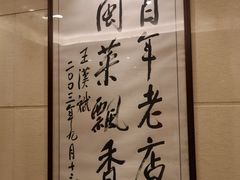 百年老店
闽菜飘香
王漢斌
二〇〇三年九月十三